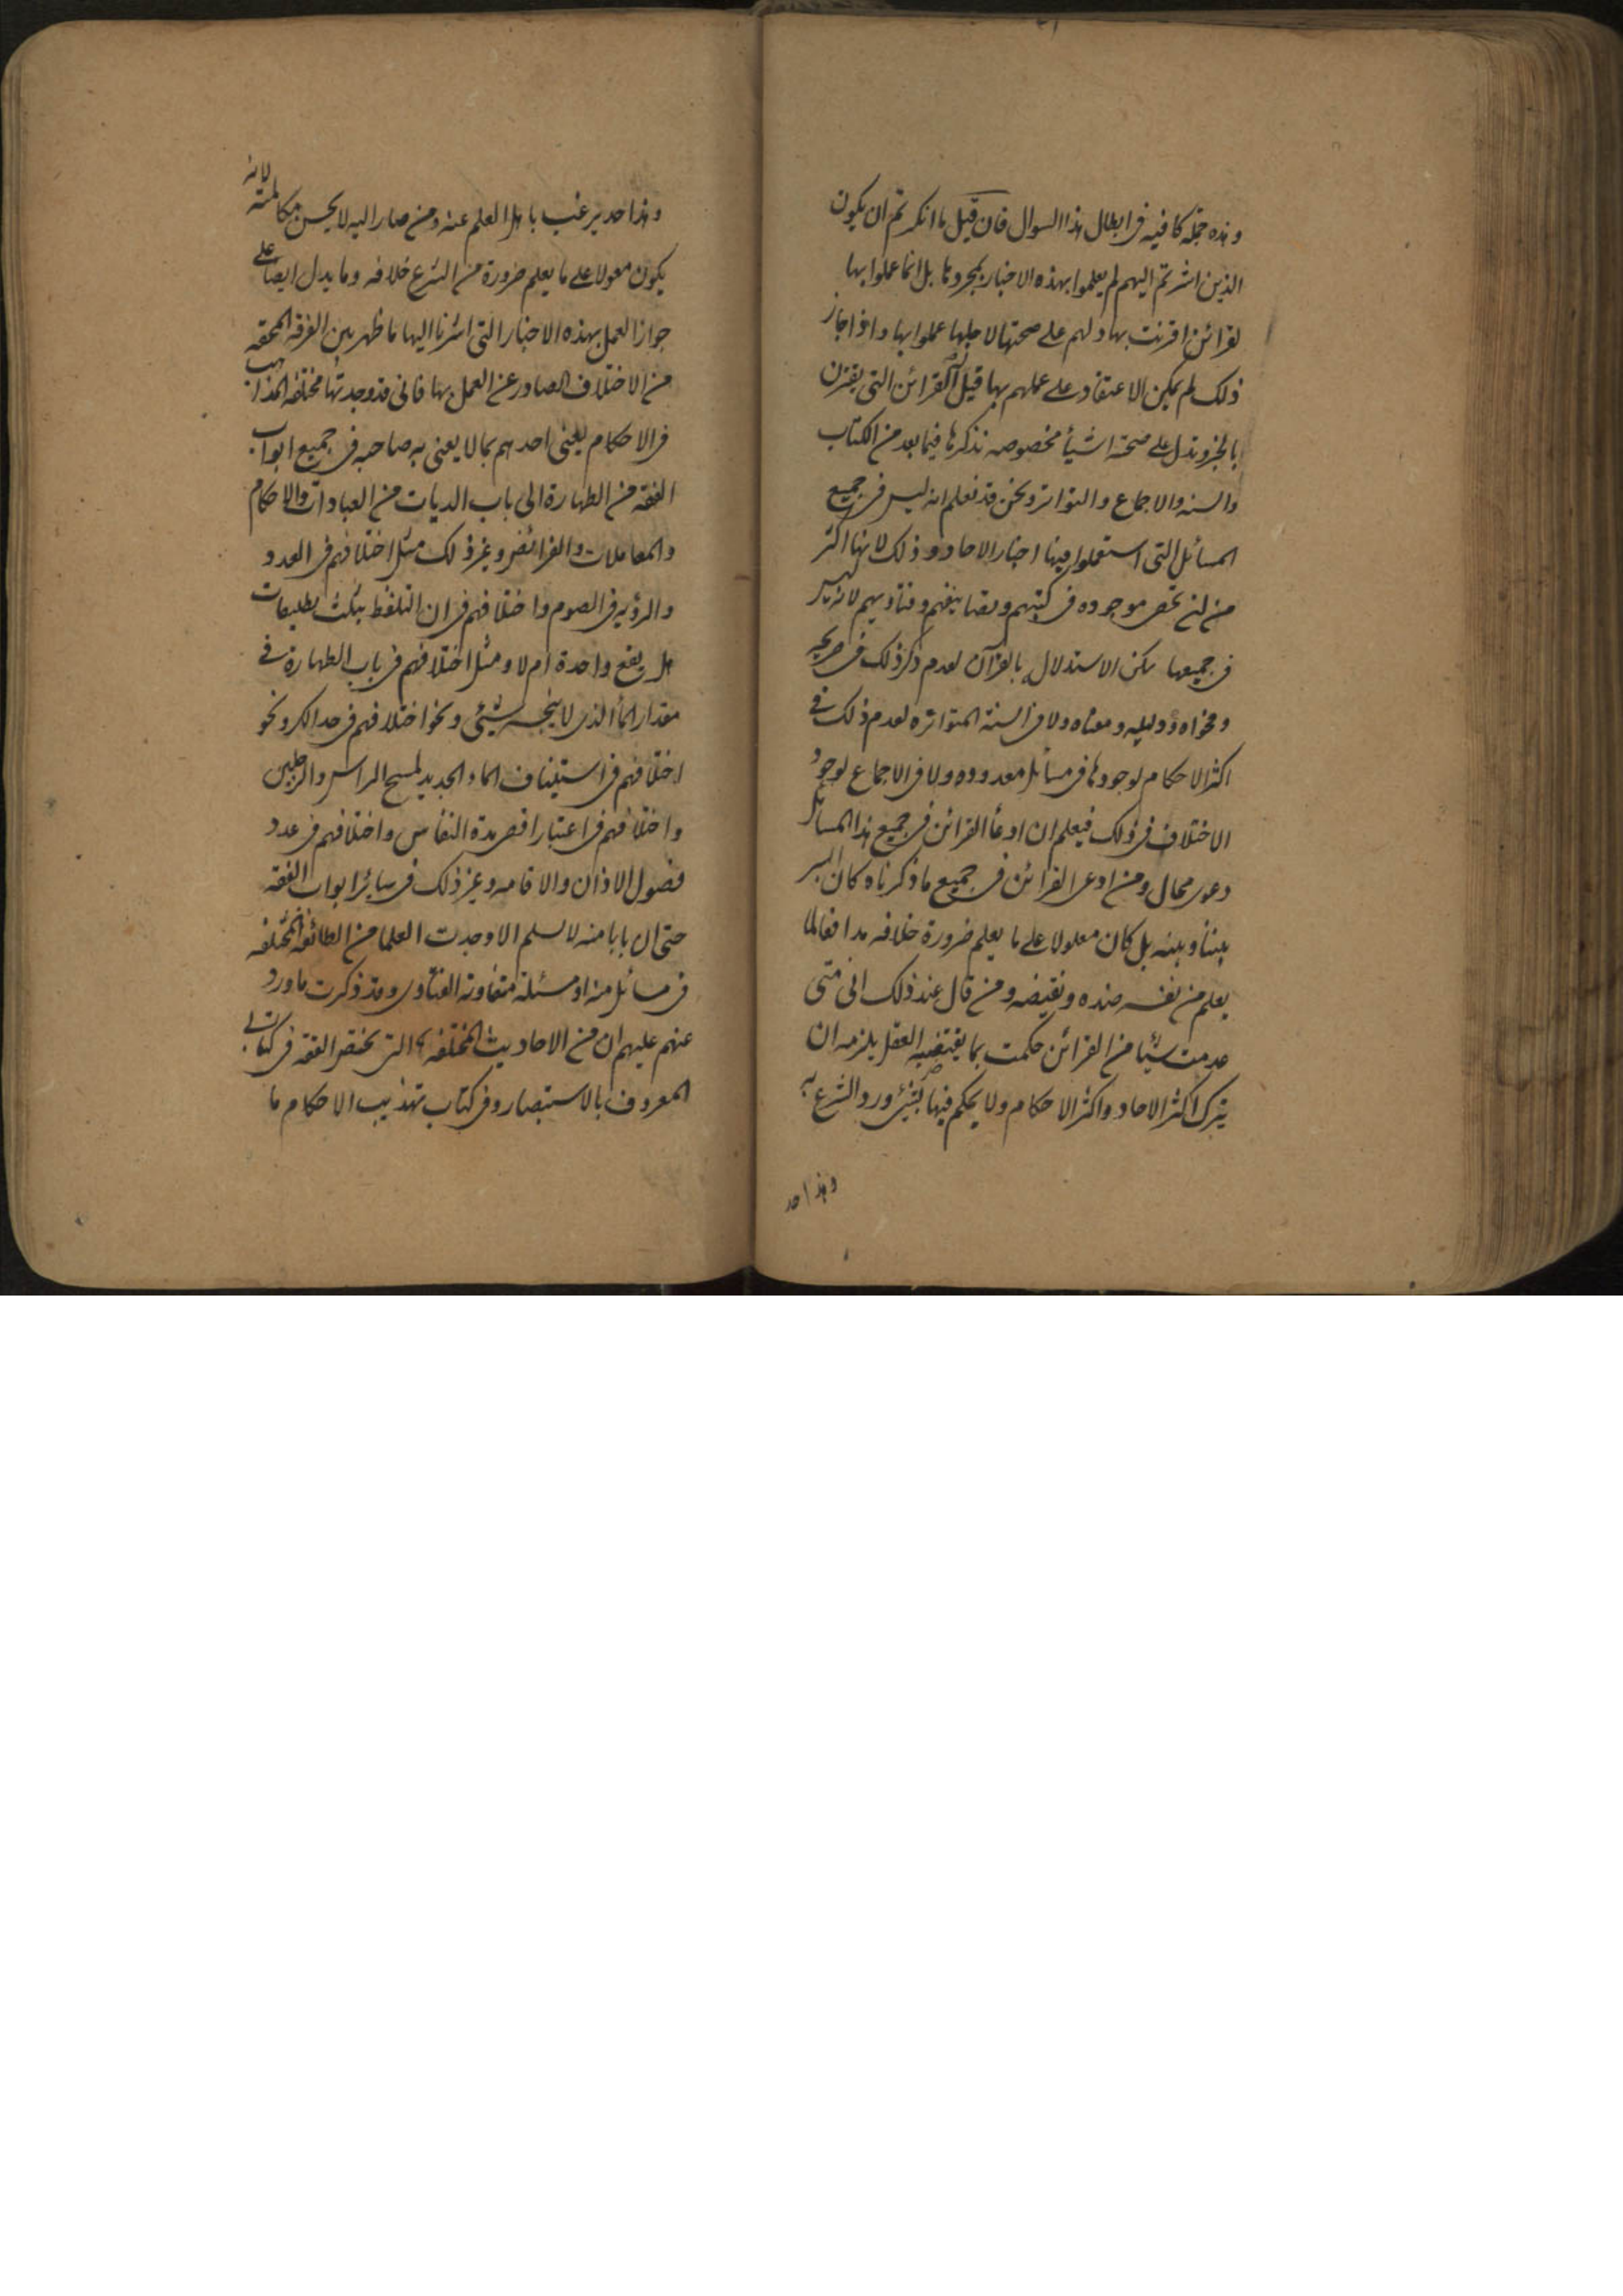 وهذه جملة كافيه فى ابطال هذا السوال فان قيل ما انكرتم ان يكون
الذين اشرتم اليهم لم يعلموا بهذه الاخبار بمجردها بل انما عملوا بها
لقرائن اقترنت بها دلهم على صحتها لاجلها عملوا بها واذا جاز
ذلك لم يمكن الاعتقاد على عملهم بها قيل القرائن التى يقترن
بالخبر وتدل على صحته اشيأ مخصوصه نذكرها فيما بعد من الكتاب
والسنه والاجماع والتواتر ونحن قد نعلم انه ليس فى جميع
المسائل التى استعملوا فيها اخبار الاحاد ذلك لانها اكثر
من ان تحصى موجوده فى كتبهم وتصانيفهم وفتاويهم لانه ليس
فى جميعها يمكن الاستدلال بالقرآن لعدم ذكر ذلك فى صريحه
وفحواه ودليله ومعناه ولا فى السنة المتواتره لعدم ذلك فى
اكثر الاحكام لوجودها فى مسائل معدوده ولا فى الاجماع لوجود
الاختلاف فى ذلك فيعلم ان ادعأ القرائن فى جميع هذا المسائل
دعوى محال ومن ادعى القرائن فى جميع ما ذكرناه كان السبر
بيننا وبينه بل كان معلولا على ما يعلم ضرورة خلافه مدافعا لما
يعلم من نفسه ضده ونقيضه ومن قال عند ذلك انى متى
عدمت شيئا من القرائن حكمت بما يقتضيه العقل يلزمه ان
يترك اكثر الاحاد واكثر الاحكام ولا يحكم فيها بشئ ورد الشرع به
وهذا حد
وهذا حد يرغب باهل العلم عنه ومن صار اليه لا يحسن مكالمته لانه
يكون معولا على ما يعلم ضرورة من الشرع خلافه وما يدل ايضا على
جواز العمل بهذه الاخبار التى اشرنا اليها ما ظهر بين الفرقه المحقه
من الاختلاف الصادر عن العمل بها فانى قد وجدتها مختلفة المذاهب
فى الاحكام يفتى احدهم بما لا يفتى به صاحبه فى جميع ابواب
الفقه من الطهارة الى باب الديات من العبادات والاحكام
والمعاملات والفرائض وغير ذلك مثل اختلافهم فى العدد
والرؤيه فى الصوم واختلافهم فى ان التلفظ بثلث تطليقات
هل يقع واحدة ام لا ومثل اختلافهم فى باب الطهارة فى
مقدار المأ الذى لا ينجسه شئ ونحو اختلافهم فى حد الكر ونحو
اختلافهم فى استيناف الماء الجديد لمسح الراس والرجلين
واختلافهم فى اعتبار اقصى مدة النفاس واختلافهم فى عدد
فصول الاذان والاقامه وغير ذلك فى سائر ابواب الفقه
حتى ان بابا منه لا يسلم الا وجدت العلما من الطائفه المختلفه
فى مسائل منه او مسئلة متفاوتة الفتاوى وقد ذكرت ما ورد
عنهم عليهم ان من الاحاديث المختلفه التى يختص الفقه فى كتابى
المعروف بالاستبصار وفى كتاب تهذيب الاحكام ما